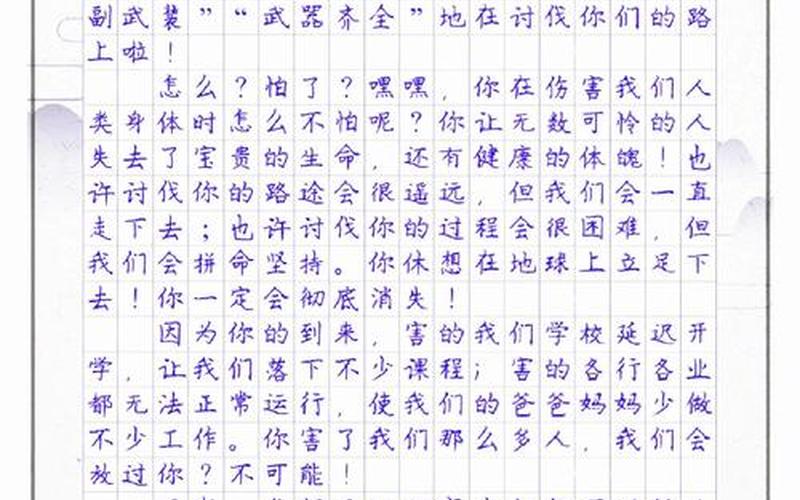 副武装”“武器齐全”地在讨伐你们的路
上啦！
怎么？怕了？嘿嘿，你在伤害我们人
类身体时怎么不怕呢？你让无数可怜的人
失去了宝贵的生命，还有健康的体魄！也
许讨伐你的路途会很遥远，但我们会一直
走下去；也许讨伐你的过程会很困难，但
我们会拼命坚持。你休想在地球上立足下
去！你一定会彻底消失！
因为你的到来，害的我们学校延迟开
学，让我们落下不少课程；害的各行各业
都无法正常运行，使我们的爸爸妈妈少做
不少工作。你害了我们那么多人，我们会
放过你？不可能！